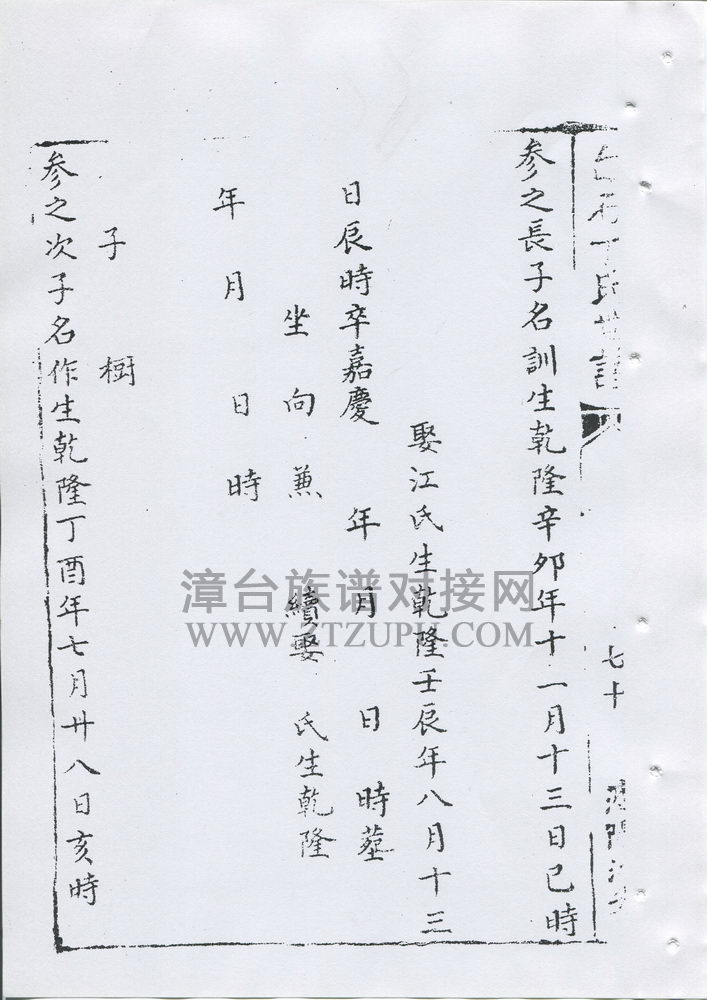 丁氏
七十
参之長子名訓生乾隆辛卯年十一月十三日巳時
娶江氏生乾隆壬辰年八月十三
日辰時卒嘉慶 年 月 日 時塟
坐 向 兼 續娶 氏生乾隆
年 月 日 時
子 樹
参之次子名作生乾隆丁酉年七月廿八日亥時
漳台族谱对接网
WWW.ZTZUPU.COM